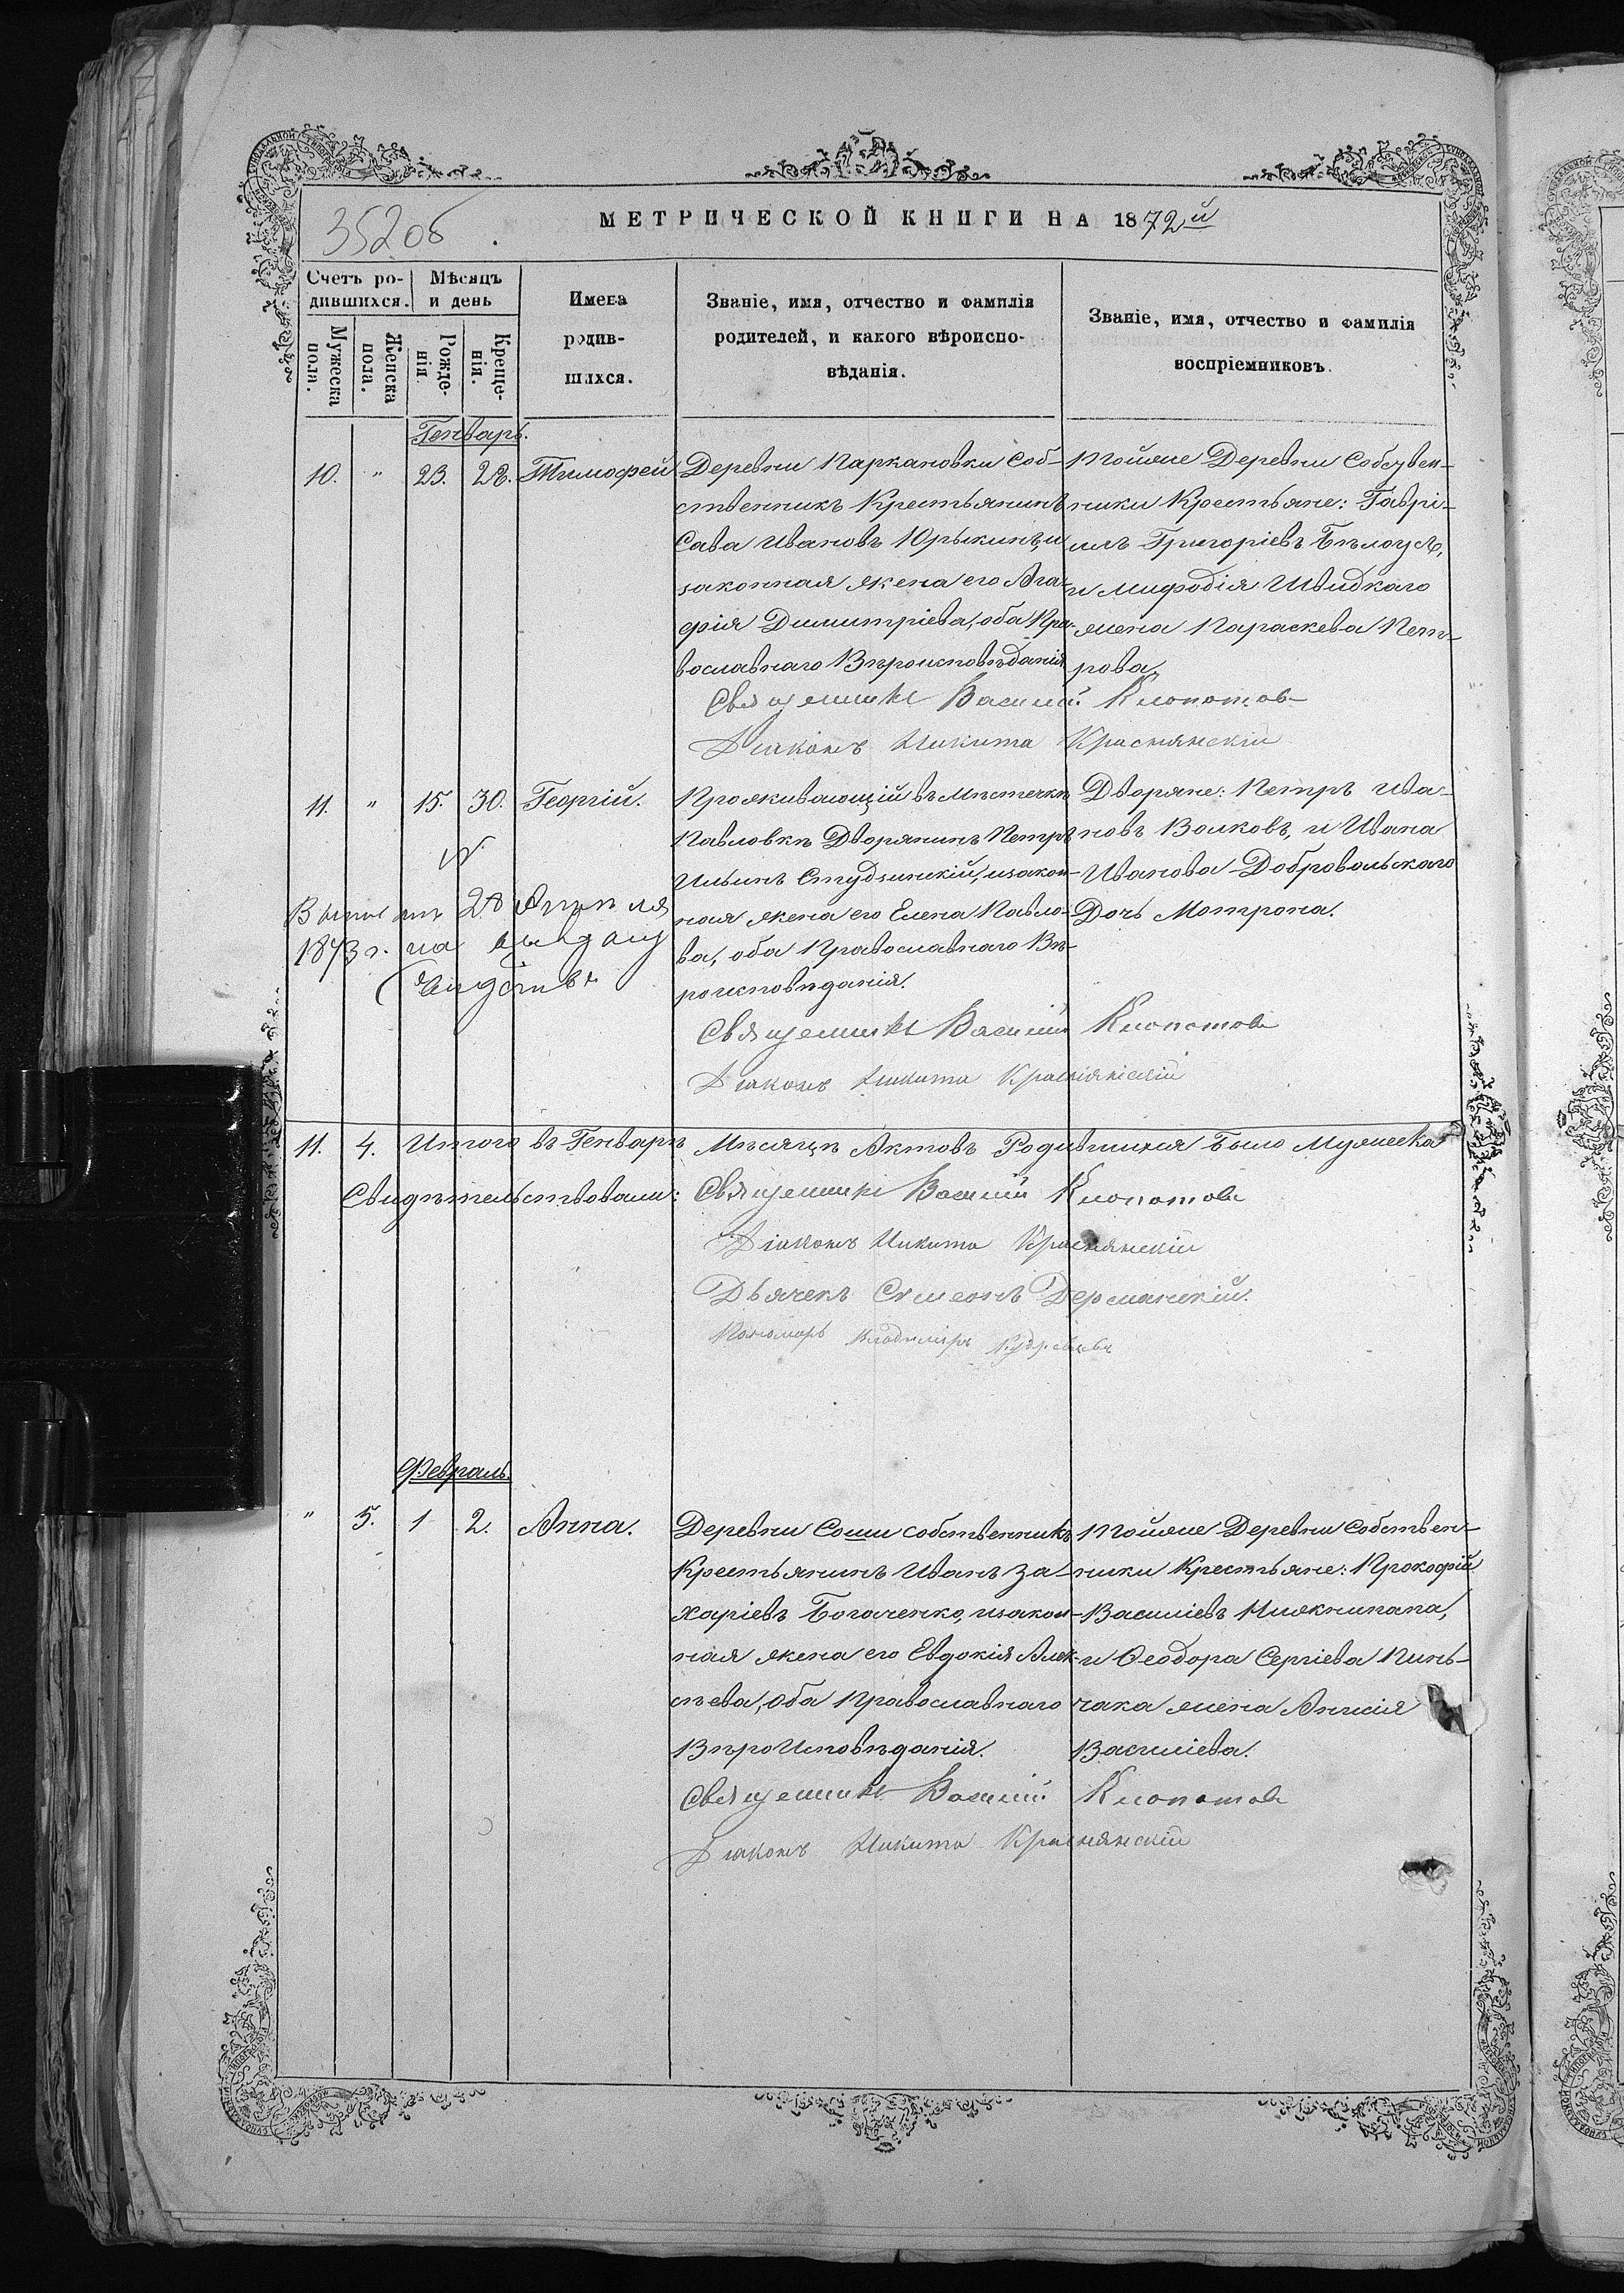 МЕТРИЧЕСКОЙ КНИГИ НА 1872й
352об
Счетъ ро-
дившихся.
Мѣсяцъ
и день
Мужеска
пола.
Женска
пола.
Рожде-
нія.
Креще-
нія.
Имена
родив-
шихся.
Званіе, имя, отчество и фамилія
родителей, и какого вѣроиспо-
вѣданія.
Званіе, имя, отчество и фамилія
воспріемниковъ.
Генварь.
10. " 23. 28. Тимофей
Деревни Паркановки Соб-
ственникъ Крестьянинъ
Сава Ивановъ Юрыкинъ, и
законная жена его Ага-
фія Димитріева, оба Пра-
вославнаго Вѣроисповѣданія
Тойже Деревни Собствен-
ники Крестьяне: Гаврі-
илъ Григоріевъ Бѣлоусъ,
и Мифодія Швидкаго
жена Параскева Пет-
рова,
Священникъ Василій Клопотов
Діаконъ Никита Краснянскій
11. " 15. 30. Георгій.
Проживающій въ Мѣстечкѣ
Павловкѣ Дворянинъ Петръ
Ильинъ Студзинскій, и закон-
ная жена его Елена Павло-
ва, оба Православнаго Вѣ-
роисповѣданія.
Дворяне: Петръ Ива-
новъ Волковъ, и Ивана
Иванова Добровольскаго
Дочь Матрона.
28 Апрѣля
1873 г. на
Священникъ Василій Клопотов
Діаконъ Никита Краснянскій
11. 4. Итого въ Генварѣ Мѣсяцѣ Актовъ Родившихся Было Мужеска
Свидѣтельствовали: Священникъ Василій Клопотов
Діаконъ Никита Краснянскій
Дьячекъ Симеонъ Дерманскій.
Пономарь Владиміръ
Февраль.
" 5. 1 2. Анна.
Деревни Соши собственникъ
Крестьянинъ Иванъ За-
харіевъ Богаченко, и закон-
ная жена его Евдокія Алек-
сѣева, оба Православнаго
Вѣроисповѣданія.
Тойже Деревни Собствен-
ники Крестьяне: Прокофій
Василіевъ Нижнипапа,
и Ѳеодора Сергіева Пинь-
чака жена Анисія
Василіева.
Священникъ Василій Клопотов
Діаконъ Никита Краснянскій